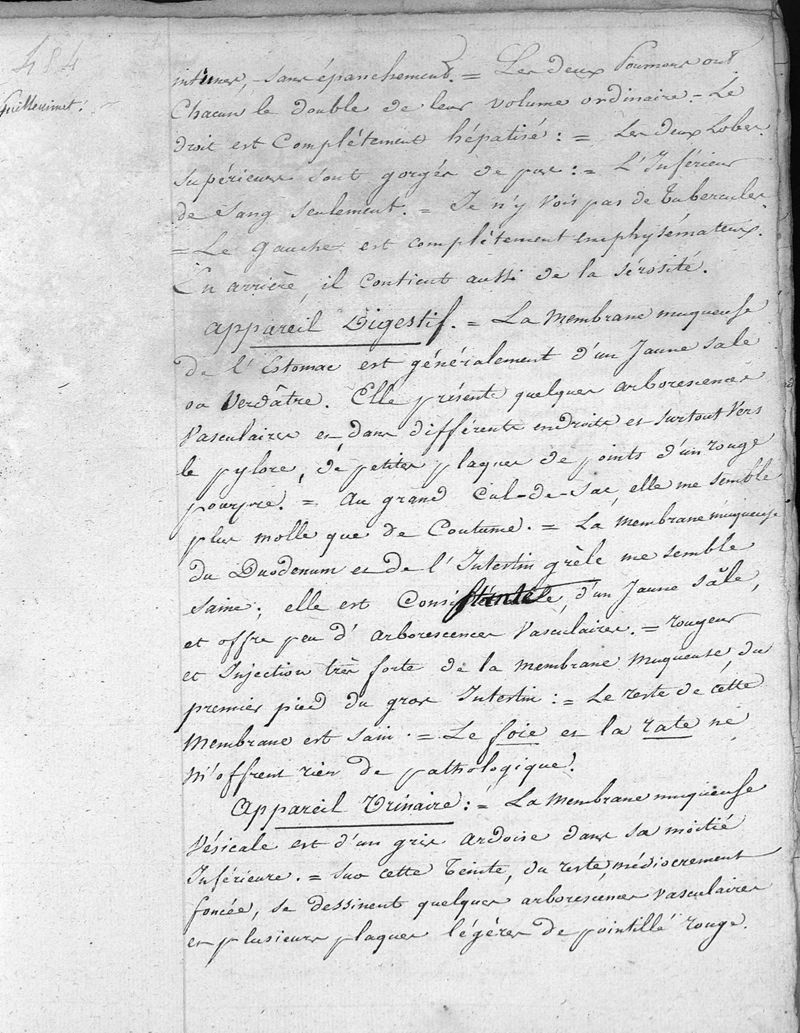 484
Guillemines.
intimes, sans épanchement. = Les deux Poumons ont
Chacun le double de leur volume ordinaire. - Le
droit est Complétement hépatisé : = Les deux Lobes
Supérieurs sont gorgés de pus : = L'Inférieur
de Sang seulement. = Je n'y vois pas de Tubercules.
= Le gauche est complétement emphysémateux.
En arrière, il contient aussi de la sérosité.
Appareil Digestif. = La Membrane muqueuse
de l'Estomac est généralement d'un Jaune sale
ou Verdâtre. Elle présente quelques arborescences
Vasculaires et, dans différents endroits et surtout vers
le pylore, de petites plaques de points d'un rouge
pourpre. = Au grand Cul-de-Sac, elle me semble
plus molle que de Coutume. = La membrane muqueuse
du Duodenum et de l'Intestin grêle me semble
saine; elle est Consistante, d'un Jaune sâle,
et offre peu d'arborescences Vasculaires. = rougeur
et Injection très forte de la membrane muqueuse, du
premier pied du gros Intestin : = Le reste de cette
Membrane est sain. = Le foie et la rate ne
m'offrent rien de pathologique.
Appareil Urinaire : = La Membrane muqueuse
Vésicale est d'un gris ardoise dans sa moitié
Inférieure. = Sur cette Teinte, du reste médiocrement
foncée, se dessinent quelques arborescences vasculaires
et plusieurs plaques légères de pointillé rouge.